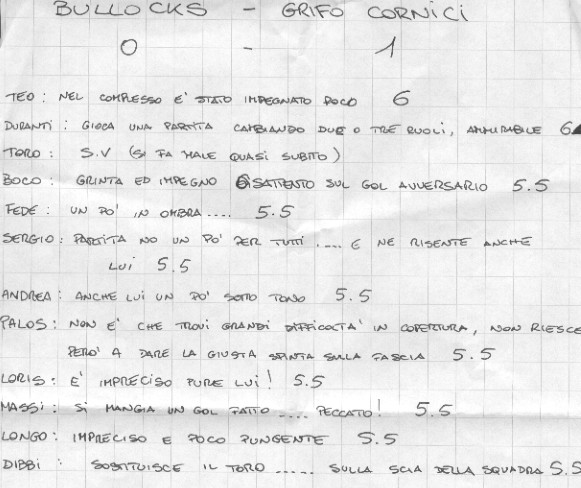 BULLOCKS - GRIFO CORNICI
0 - 1
TEO: NEL COMPLESSO E' STATO IMPEGNATO POCO 6
DURANTI: GIOCA UNA PARTITA CAMBIANDO DUE O TRE RUOLI, AMMIRABILE 6
TORO: S.V (SI FA MALE QUASI SUBITO)
BOCO: GRINTA ED IMPEGNO DISATTENTO SUL GOL AVVERSARIO 5.5
FEDE: UN PO' IN OMBRA.... 5.5
SERGIO: PARTITA NO UN PO' PER TUTTI .... E NE RISENTE ANCHE
LUI 5.5
ANDREA: ANCHE LUI UN PO' SOTTO TONO 5.5
PALOS: NON E' CHE TROVI GRANDI DIFFICOLTA' IN COPERTURA, NON RIESCE
PERO' A DARE LA GIUSTA SPINTA SULLA FASCIA 5.5
LORIS: E' IMPRECISO PURE LUI! 5.5
MASSI: SI MANGIA UN GOL FATTO .... PECCATO! 5.5
LONGO: IMPRECISO E POCO PUNGENTE 5.5
DIBBI: SOSTITUISCE IL TORO ..... SULLA SCIA DELLA SQUADRA 5.5